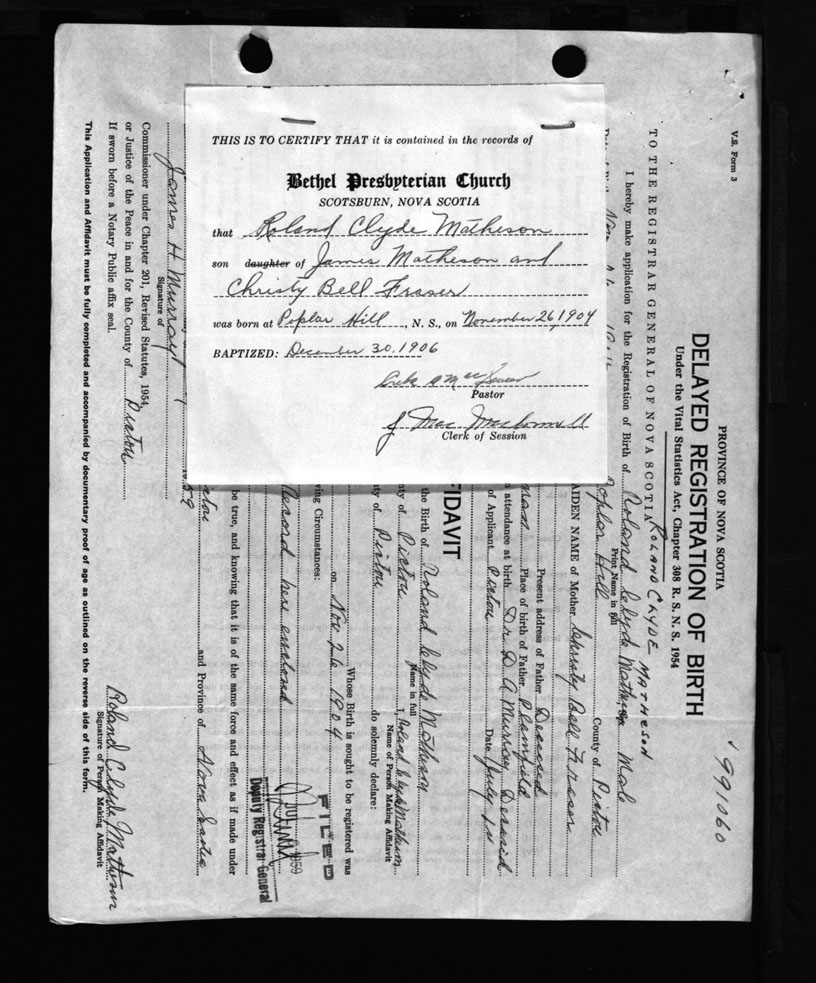 THIS IS TO CERTIFY THAT it is contained in the records of
Bethel Presbyterian Church
SCOTSBURN, NOVA SCOTIA
that Roland Clyde Matheson
son daughter of James Matheson and
Christy Bell Fraser
was born at Poplar Hill, N. S., on November 26, 1904
BAPTIZED: December 30. 1906
Pastor
J Mac
Clerk of Session
V.S. Form 3
991060
PROVINCE OF NOVA SCOTIA
DELAYED REGISTRATION OF BIRTH
Under the Vital Statistics Act, Chapter 308 R. S. N. S. 1954
TO THE REGISTRAR GENERAL OF NOVA SCOTIA
ROLAND CLYDE MATHESON
I hereby make application for the Registration of Birth of Roland Clyde Matheson Male
Print Name in full
Nov 26 Poplar Hill County of Pictou
AIDEN NAME of Mother Christy Bell Fraser
Present address of Father Deceased
Place of birth of Father Plainfield
attendance at birth Dr D A Murray Deceasid
of Applicant Pictou Date July
FIDAVIT
the Birth of Roland Clyde Matheson
Name in full
ty of Pictou I, Roland Clyde Matheson
Name of Person Making Affidavit
ty of Pictou do solemnly declare:
Whose Birth is sought to be registered was
on Nov 26 1904
ving Circumstances:
Record here enclosed
FILED
1959
Deputy Registrar General
be true, and knowing that it is of the same force and effect as if made under
ctou and Province of Nova Scotia
59
James H Murray
Signature of
Commissioner under Chapter 201, Revised Statutes, 1954,
or Justice of the Peace in and for the County of Pictou
If sworn before a Notary Public affix seal.
Roland Clyde Matheson
Signature of Person Making Affidavit
This Application and Affidavit must be fully completed and accompanied by documentary proof of age as outlined on the reverse side of this form.